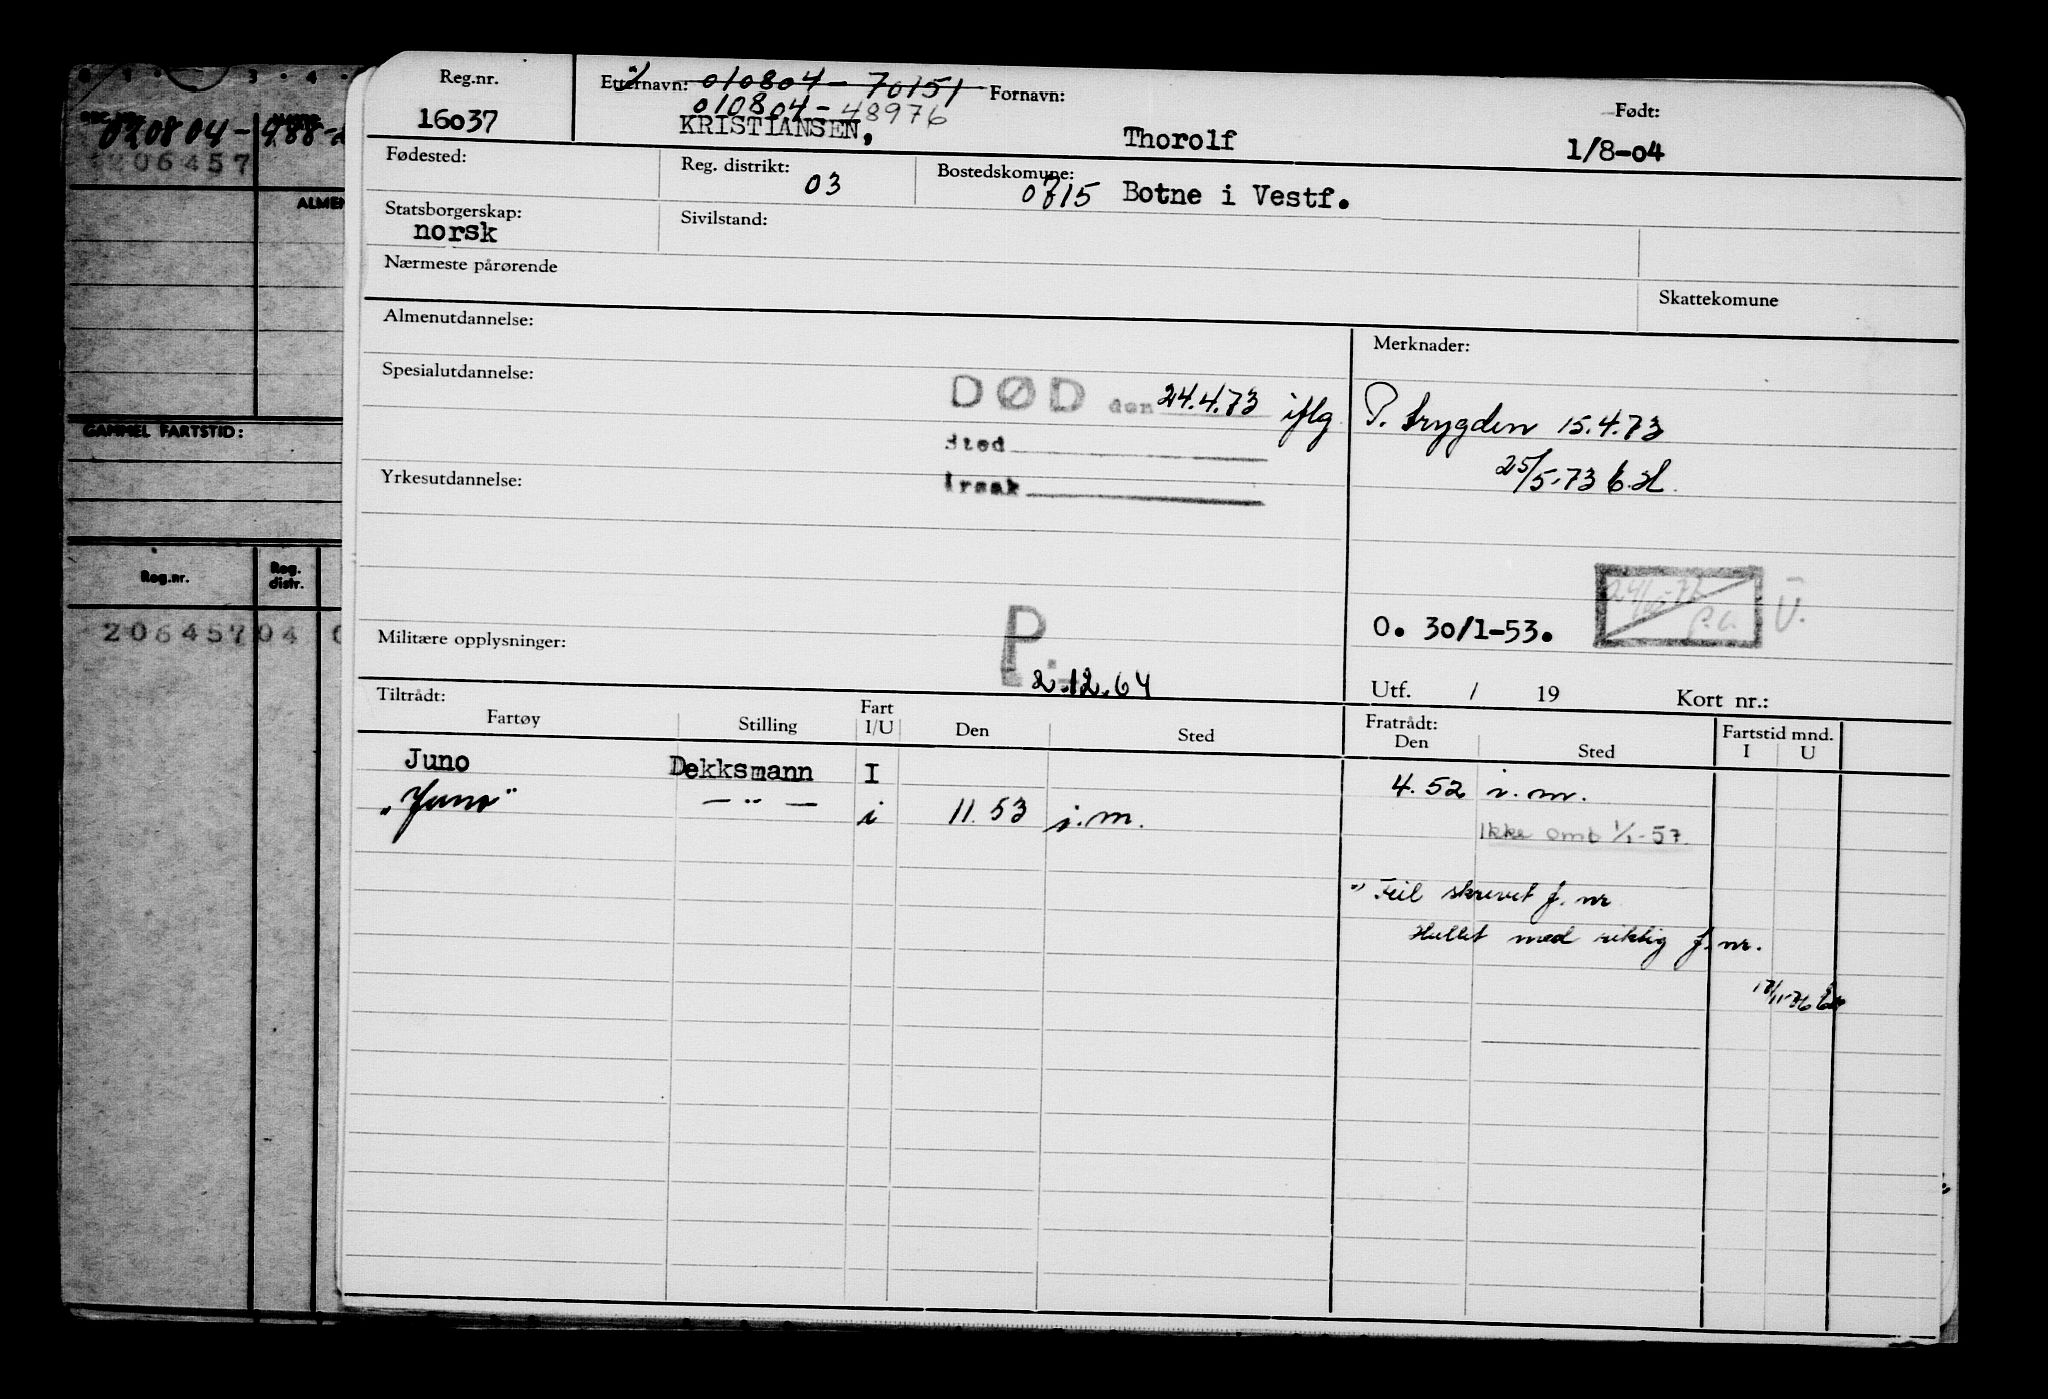 Reg.nr. Etternavn: 010804 - 70151 Fornavn: Født:
010804 - 48976
16037 KRISTIANSEN, Thorolf 1/8-04
Fødested: Reg. distrikt: 03 Bostedskomune: 0715 Botne i Vestf.
Statsborgerskap: norsk Sivilstand:
Nærmeste pårørende
Skattekomune
Almenutdannelse: Merknader:
Spesialutdannelse:
DØD den 24.4.73 iflg P. trygden 15.4.73
Sted
25/5-73
Yrkesutdannelse:
Årsak
O. 30/1-53. U.
Militære opplysninger:
P.
2.12.64
Utf. / 19 Kort nr.:
Tiltrådt: Fratrådt: Fartstid mnd.
Fartøy Stilling Fart I/U Den Sted Den Sted I U
Juno Dekksmann I 4.52 i.m.
"Juno" — " — i 11.53 i.m.
Ikke omb 1/1-57.
") Feil skrevet f. nr
Hullet med riktig f. nr.
17/11-76
010804 - 488
206457
ALMEN
GAMMEL FARTSTID:
Reg.nr. Reg. distr.
206457 04 0